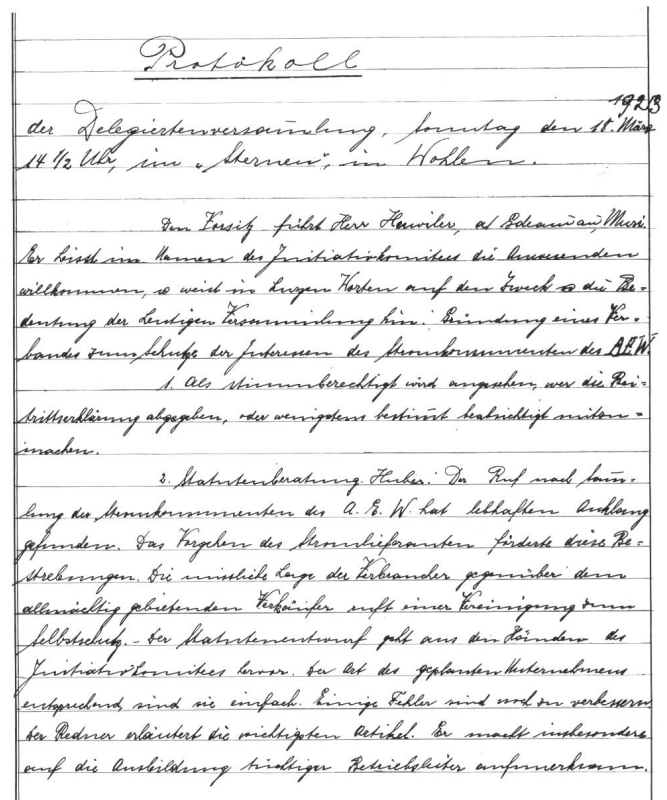 Protokoll
1923
der Delegiertenversam̅lung, Sonntag den 18. März
14 1/2 Uhr, im „Sternen", in Wohlen.
Den Vorsitz führt Herr Heuwiler, a/ Muri.
Er heisst im Namen des Initiativkomitees die Anwesenden
willkommen, weist in kurzen Worten auf den Zweck die Be=
deutung der heutigen Versammlung hin: Gründung eines Ver=
bandes zum Schutze der Interessen des Stromkonsumenten des A.E.W.
1. Als stimmberechtigt wird angesehen, wer die Bei=
trittserklärung abgegeben, oder wenigstens bestim̅t beabsichtigt mitzu=
machen.
2. Statutenberatung. Huber: Der Ruf nach Sam̅=
lung der Stromkonsumenten des A. E. W. hat lebhaften Anklang
gefunden. Das Vorgehen des Stromlieferanten förderte diese Be=
strebungen. Die missliche Lage der Verbraucher gegenüber dem
allmächtig gebietenden Verkäufer ruft einer Vereinigung zum
Selbstschutz. - Der Statutenentwurf geht aus den Händen des
Initiativkomitees hervor. Der Art des geplanten Unternehmens
entsprechend, sind sie einfach. Einige Fehler sind noch zu verbessern
Der Redner erläutert die wichtigsten Artikel. Er macht insbesondere
auf die Ausbildung tüchtiger Betriebsleiter aufmerksam.